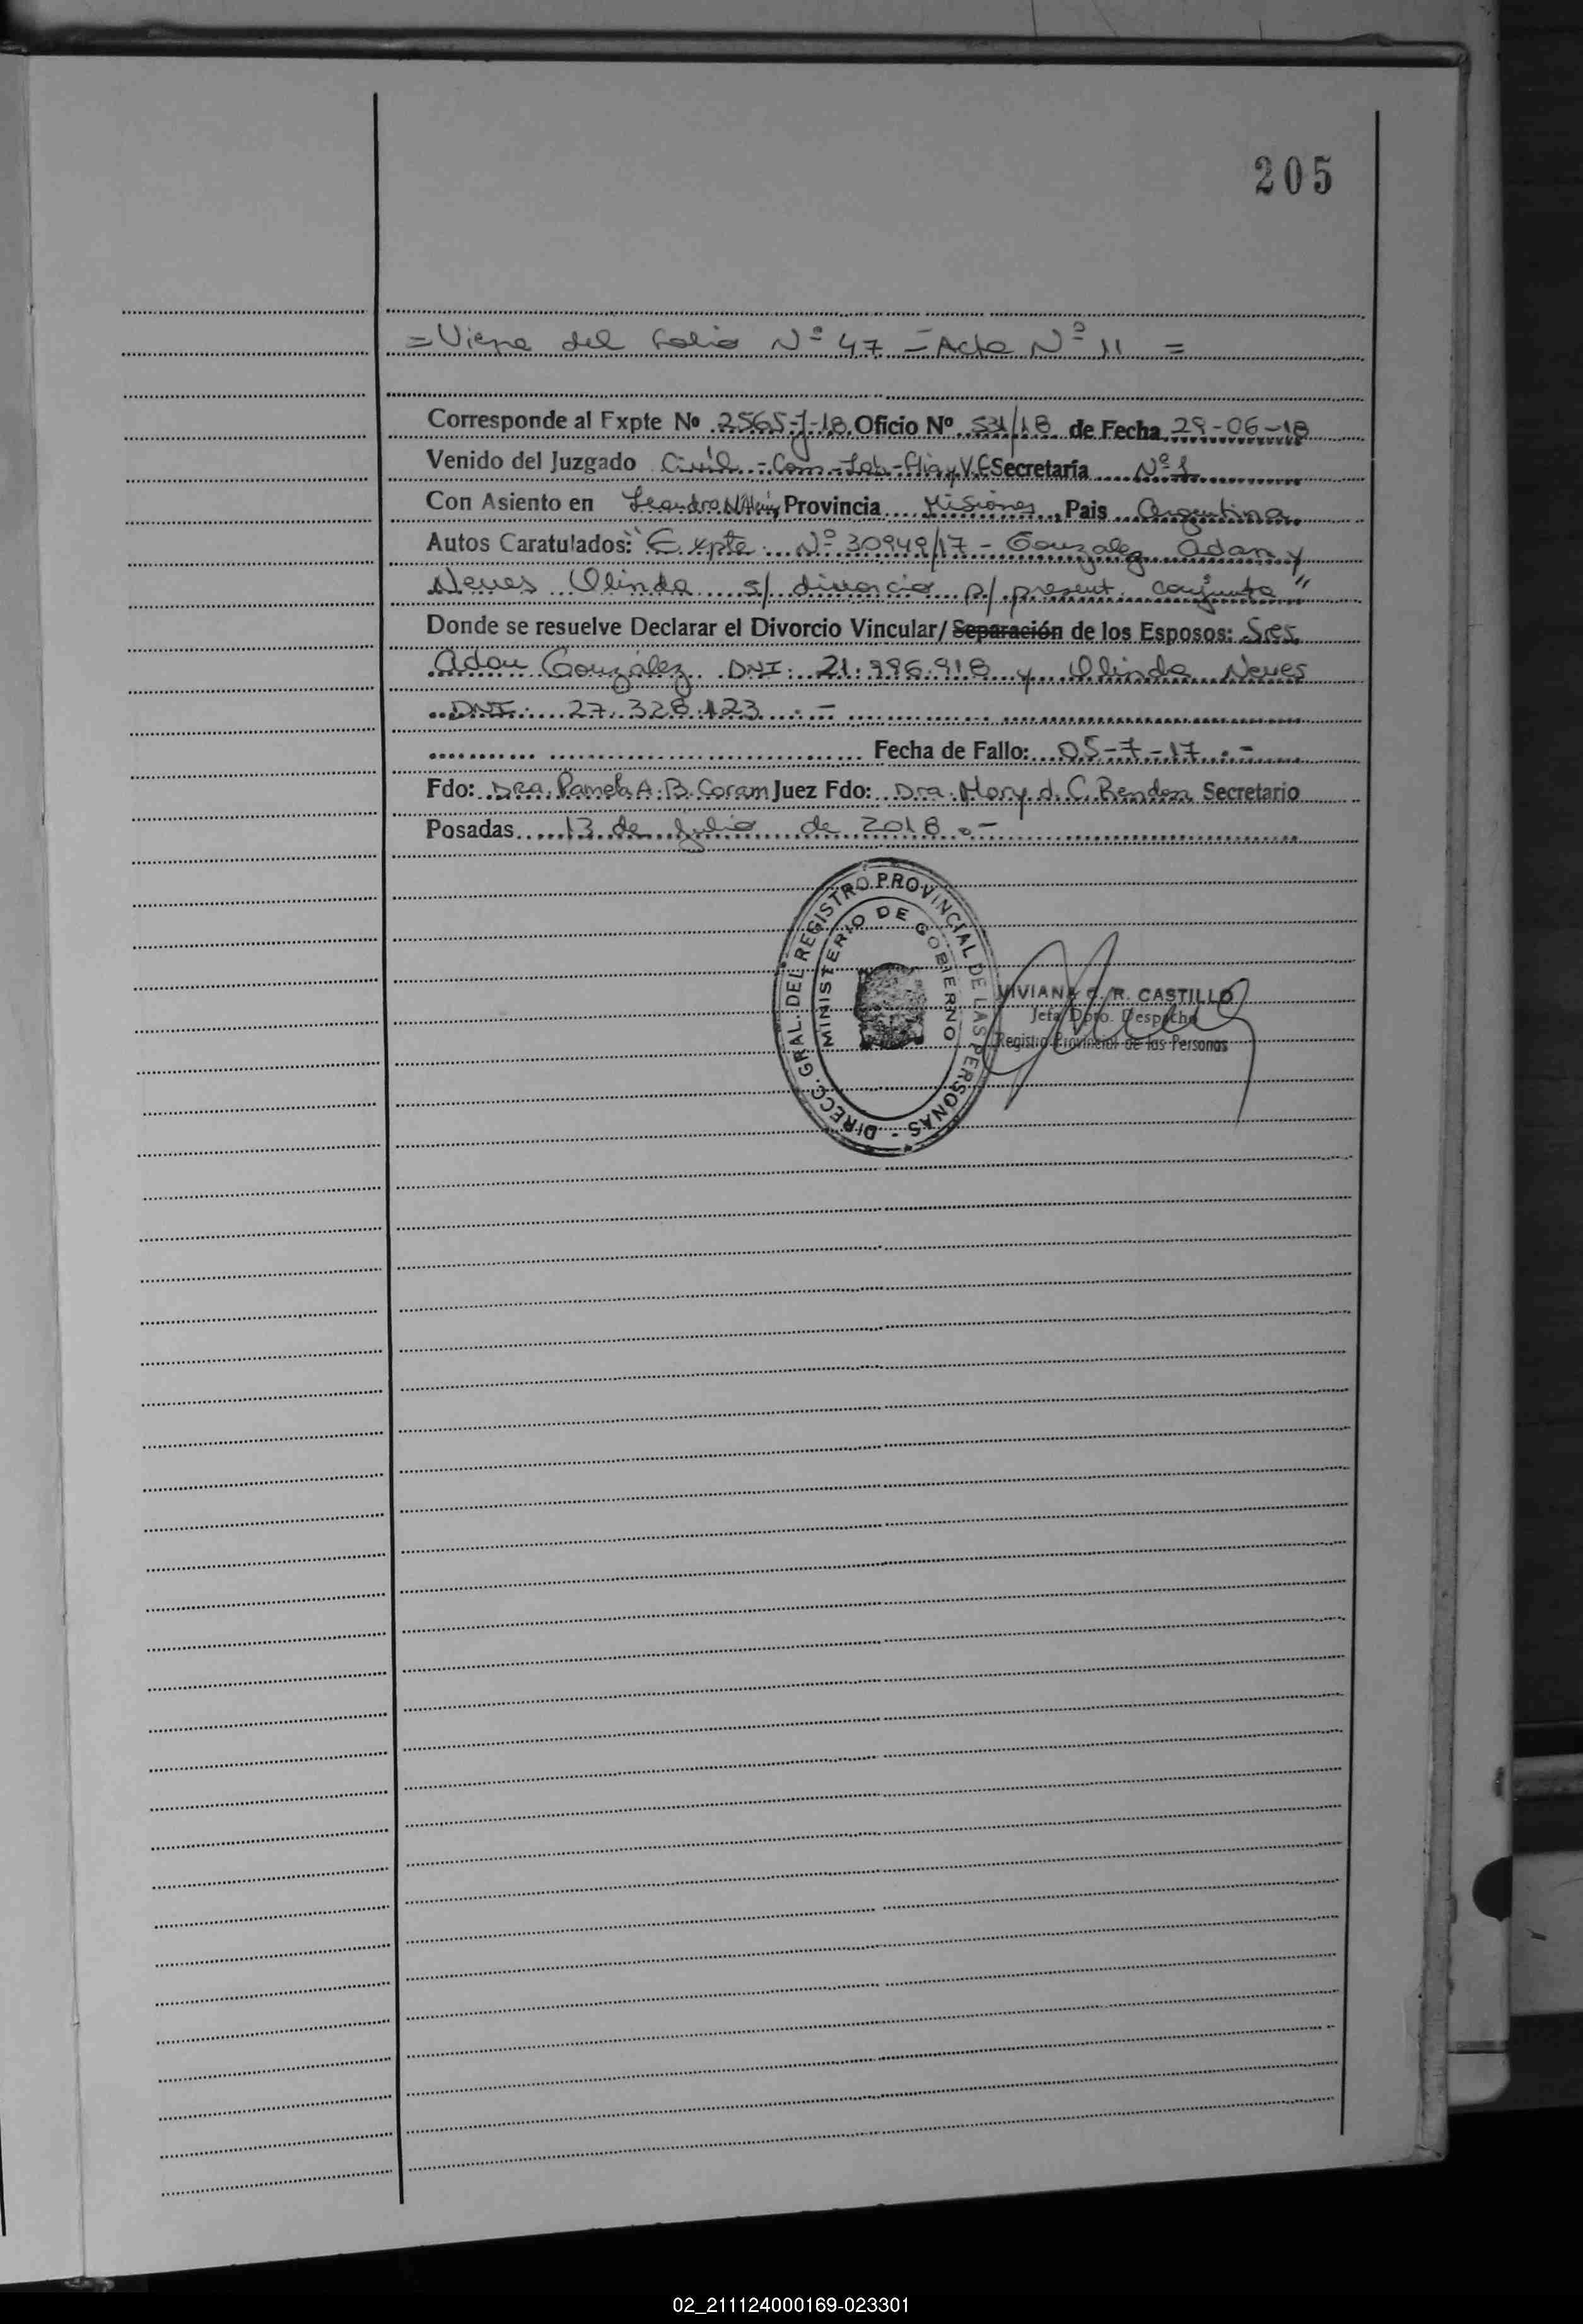 205
=Viene del folio Nº 47 - Acta Nº 11 =
Corresponde al Expte Nº 2565-J-18 Oficio Nº 531/18 de Fecha 29-06-18
Venido del Juzgado Civil - Com - Lab - Flia y V.F Secretaría Nº 1
Con Asiento en Leandro N Alem, Provincia Misiones, Pais Argentina
Autos Caratulados: "Expte. Nº 30949/17 - Gonzalez Adan y
Neves Olinda s/ divorcio p/ present. conjunta"
Donde se resuelve Declarar el Divorcio Vincular/ Separación de los Esposos: Sres
Adan González DNI: 21.996.918 y Olinda Neves
DNI: 27.328.123.-
Fecha de Fallo: 05-7-17.-
Fdo: DRA. Pamela A. B. Juez Fdo: Dra. Mary d. C. Secretario
Posadas 13 de Julio de 2018.-
DIRECC. GRAL. DEL REGISTRO PROVINCIAL DE LAS PERSONAS -
MINISTERIO DE GOBIERNO
VIVIANA C. R. CASTILLO
Jefa Dpto. Despacho
Registro Provincial de las Personas
02_211124000169-023301